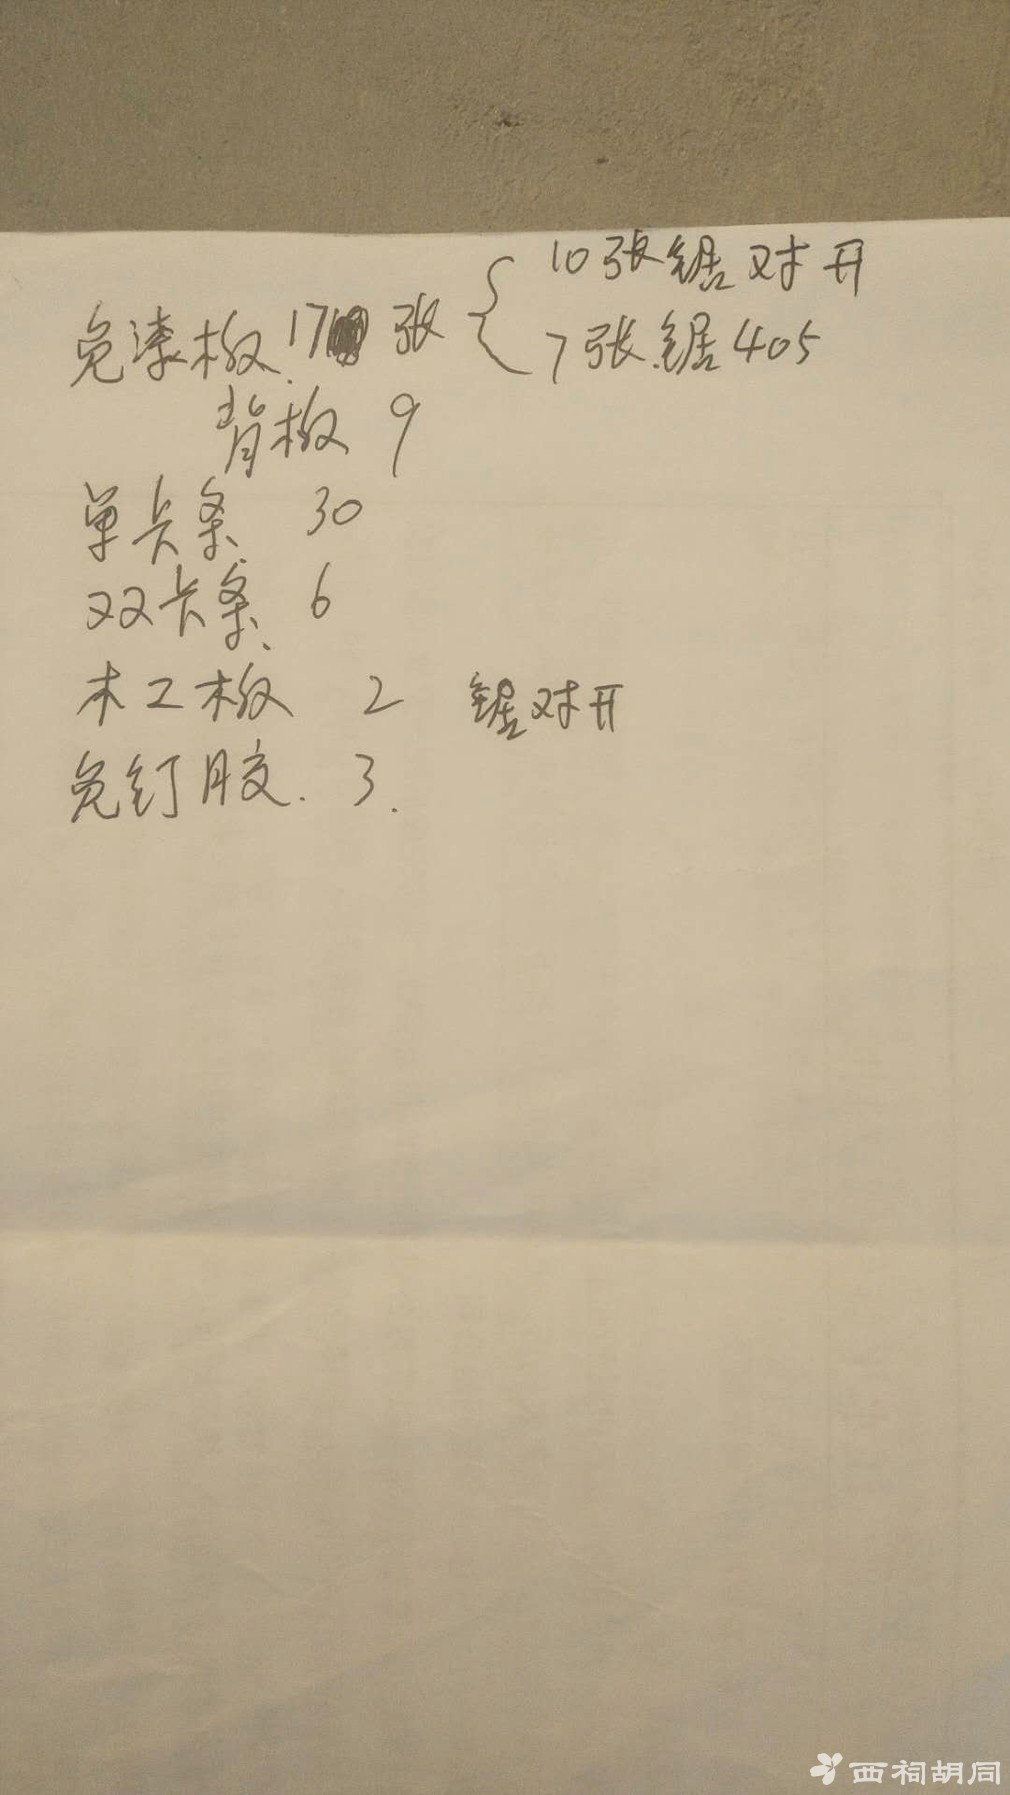 免漆板.17张{10张锯对开
7张.锯405
背板 9
单卡条 30
双卡条、6
木工板 2 锯对开
免钉胶. 3.
西祠胡同